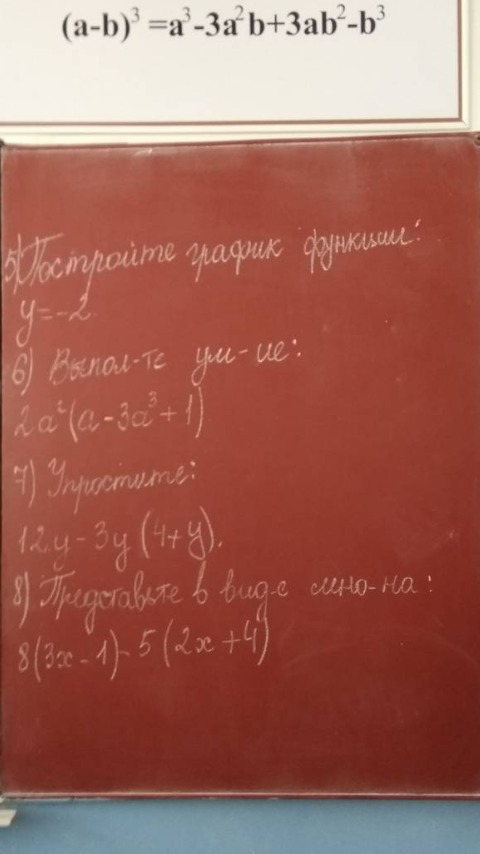 (a-b)³ =a³-3a²b+3ab²-b³
5) Постройте график функции:
y=-2
6) Выпол-те ум-ие:
2a²(a-3a³+1)
7) Упростите:
12y-3y(4+y).
8) Представьте в виде мно-на:
8(3x-1)-5(2x+4)